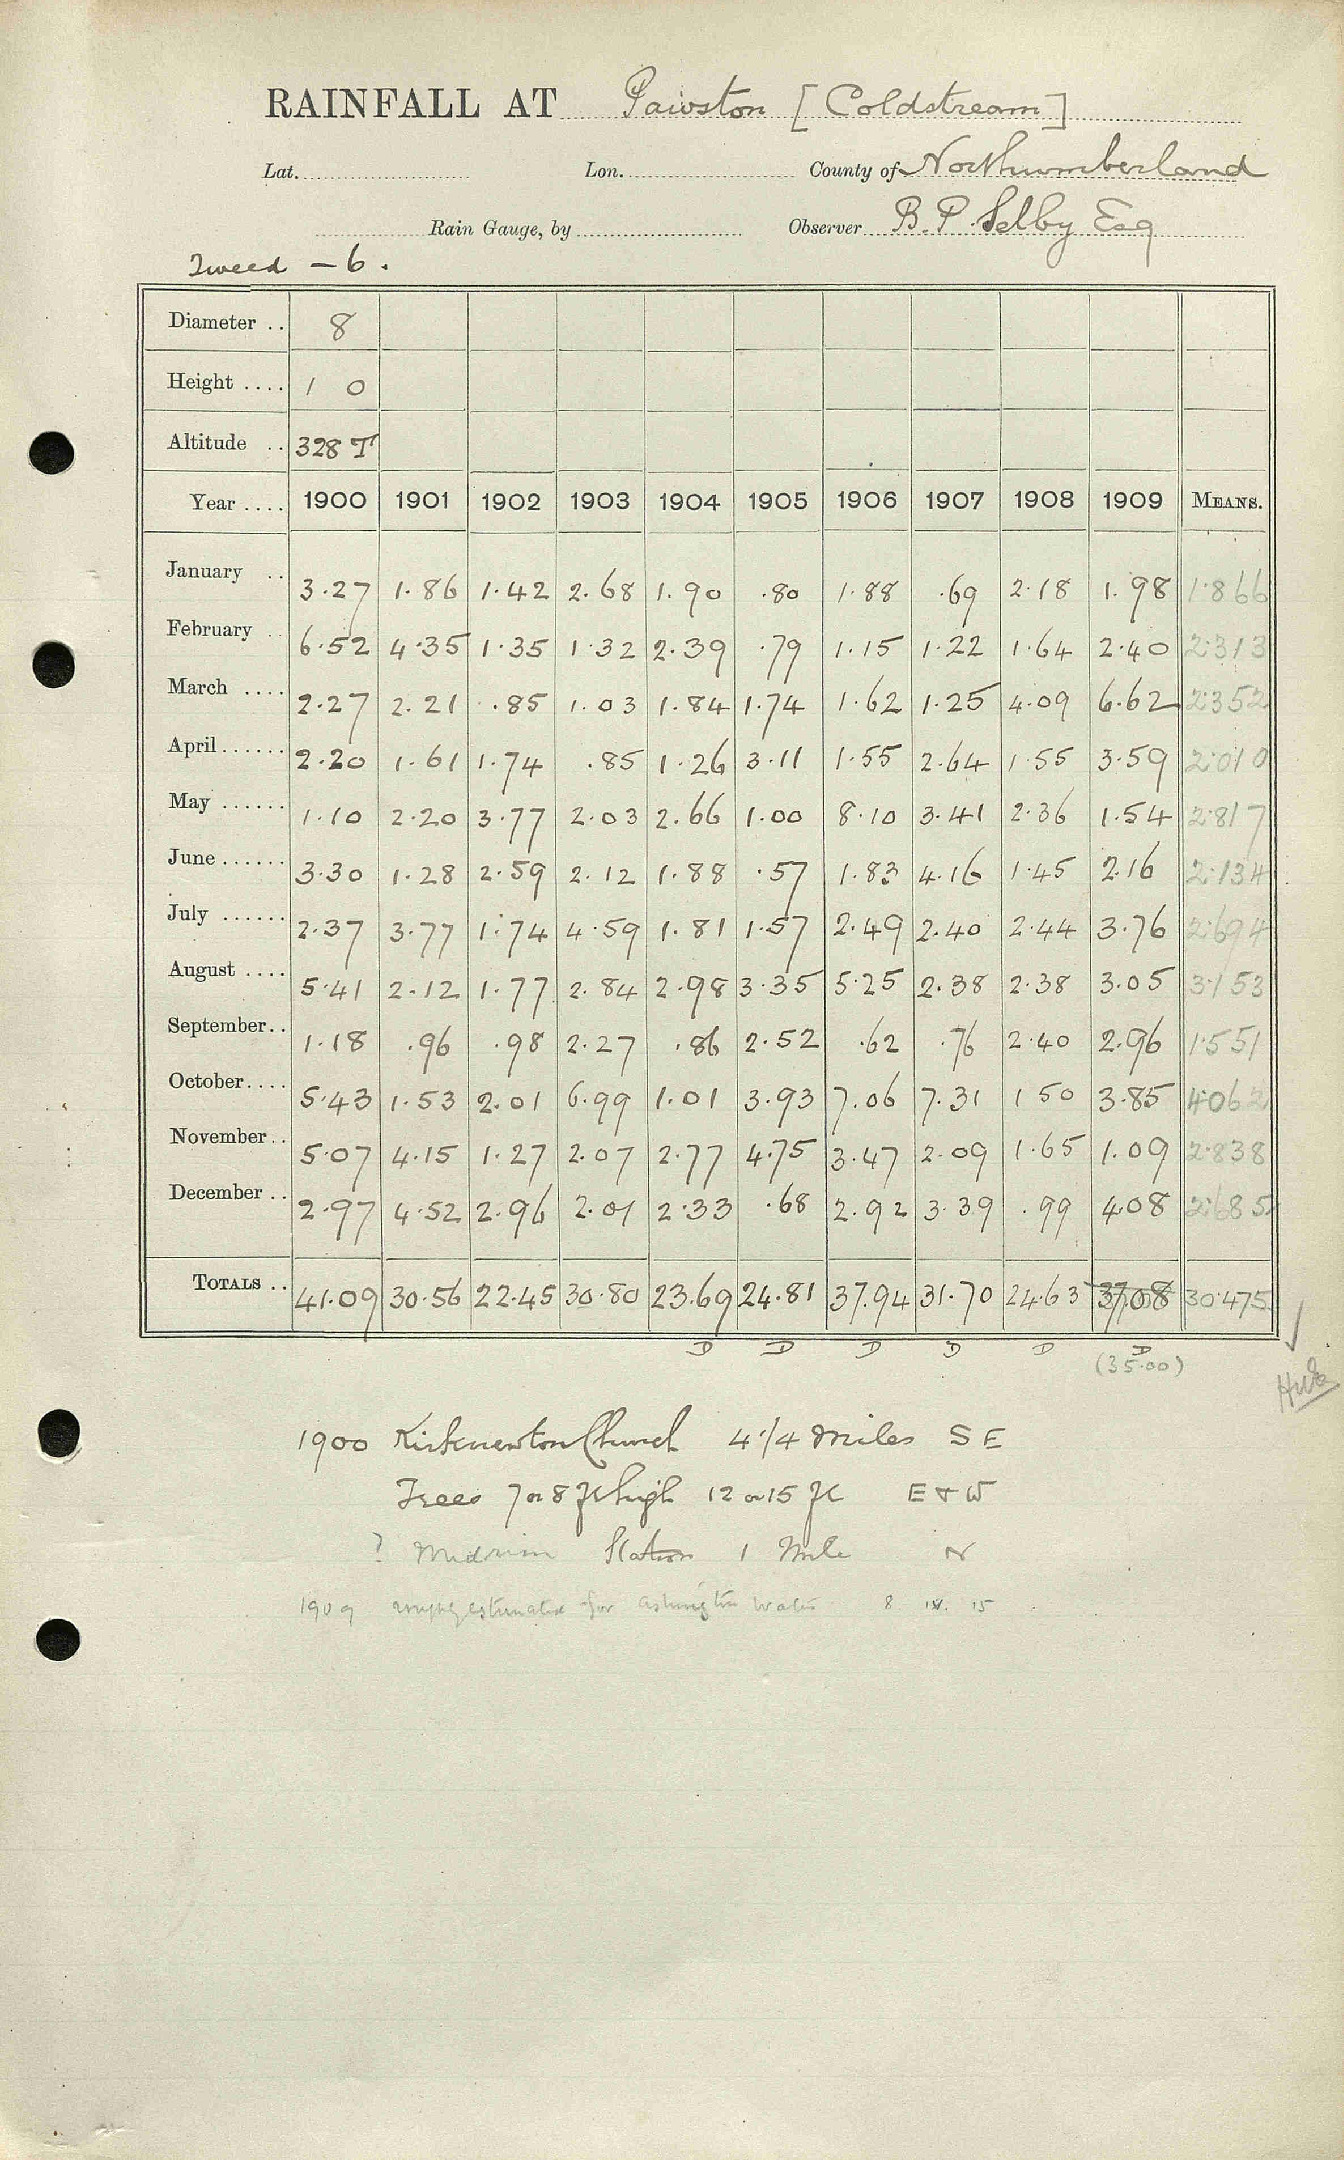 RAINFALL AT Pawston [Coldstream]
Lat. Lon. County of Northumberland
Rain Gauge, by Observer B.P. Selby Esq
Tweed - 6.
Diameter .. 8
Height .... 1 0
Altitude .. 328 T
Year .... 1900 1901 1902 1903 1904 1905 1906 1907 1908 1909 MEANS.
January .. 3.27 1.86 1.42 2.68 1.90 .80 1.88 .69 2.18 1.98 1.866
February .. 6.52 4.35 1.35 1.32 2.39 .79 1.15 1.22 1.64 2.40 2.313
March .... 2.27 2.21 .85 1.03 1.84 1.74 1.62 1.25 4.09 6.62 2.352
April ...... 2.20 1.61 1.74 .85 1.26 3.11 1.55 2.64 1.55 3.59 2.010
May ...... 1.10 2.20 3.77 2.03 2.66 1.00 8.10 3.41 2.36 1.54 2.817
June ...... 3.30 1.28 2.59 2.12 1.88 .57 1.83 4.16 1.45 2.16 2.134
July ...... 2.37 3.77 1.74 4.59 1.81 1.57 2.49 2.40 2.44 3.76 2.694
August .... 5.41 2.12 1.77 2.84 2.98 3.35 5.25 2.38 2.38 3.05 3.153
September.. 1.18 .96 .98 2.27 .86 2.52 .62 .76 2.40 2.96 1.551
October.... 5.43 1.53 2.01 6.99 1.01 3.93 7.06 7.31 1 50 3.85 4.062
November.. 5.07 4.15 1.27 2.07 2.77 4.75 3.47 2.09 1.65 1.09 2.838
December .. 2.97 4.52 2.96 2.01 2.33 .68 2.92 3.39 .99 4.08 2.685
TOTALS .. 41.09 30.56 22.45 30.80 23.69 24.81 37.94 31.70 24.63 37.08 30.475
D D D D D D
(35.00)
1900 Kirknewton Church 4 1/4 Miles S E
Trees 7 or 8 ft high 12 or 15 ft E & W
? Mindrum Station 1 Mile N
1909 estimated for Ashington Water 8 IX. 15